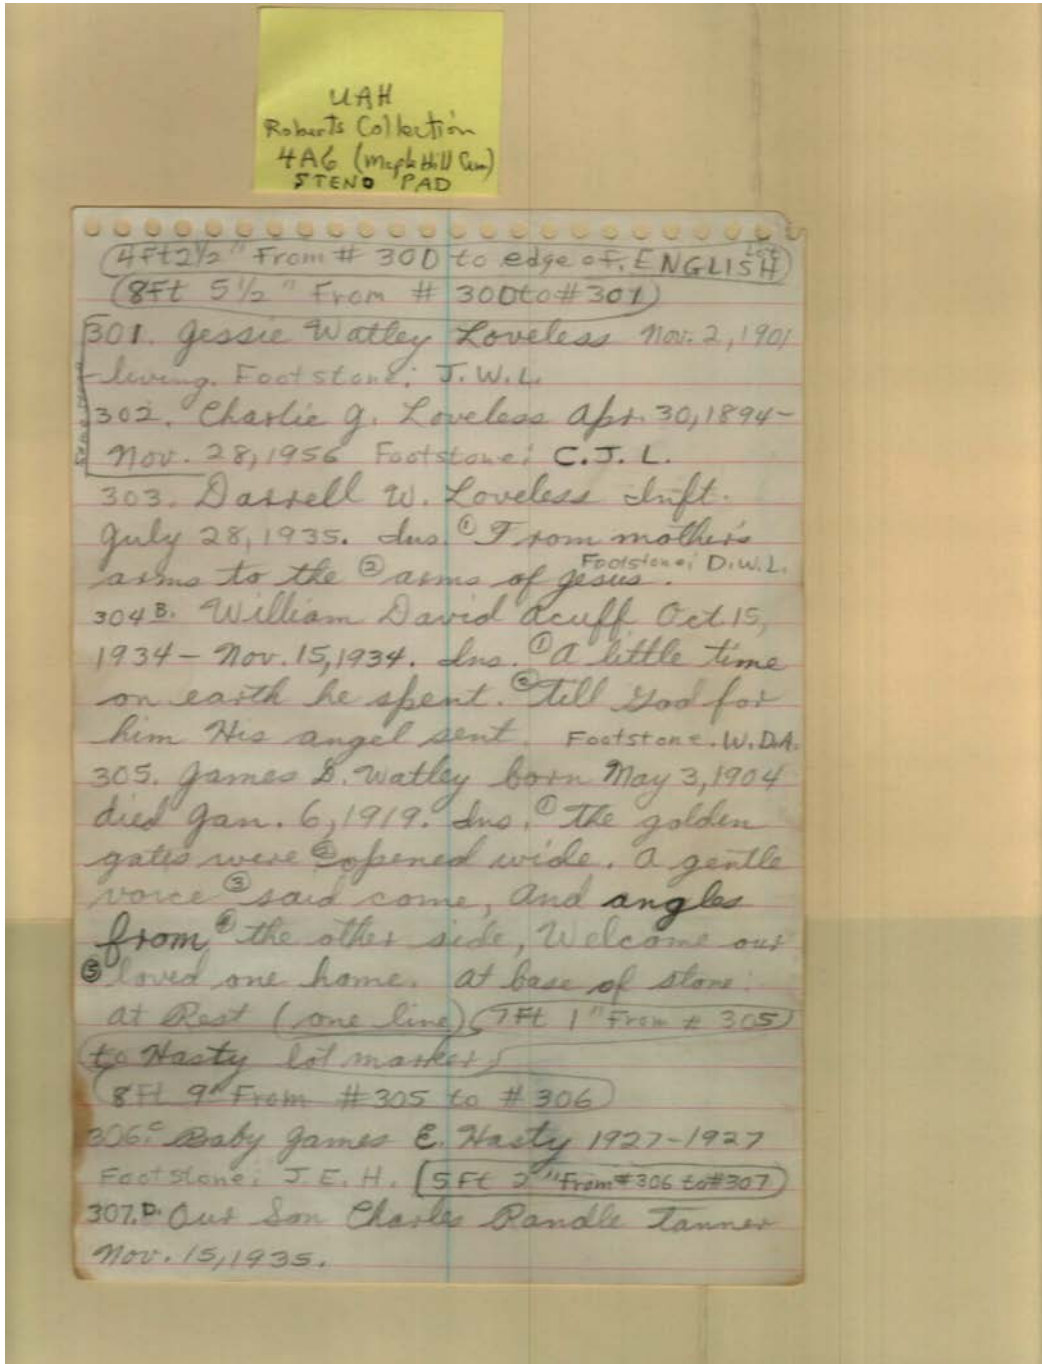 UAH
Roberts Collection
4A6 (Maple Hill Cem)
STENO PAD
4Ft 2 1/2" From # 300 to edge of ENGLISH Lot
8Ft 5 1/2" From # 300 to # 301
301. Jessie Watley Loveless Nov. 2, 1901
- living. Footstone: J.W.L.
302. Charlie J. Loveless Apr. 30, 1894 -
Nov. 28, 1956 Footstone: C.J.L.
303. Darrell W. Loveless Inft.
July 28, 1935. Ins. ① From mother's
arms to the ② arms of Jesus. Footstone: D.W.L.
304 B. William David Acuff Oct. 15,
1934 - Nov. 15, 1934. Ins. ① A little time
on earth he spent. ② Till God for
him His angel sent. Footstone. W.D.A.
305. James D. Watley born May 3, 1904
died Jan. 6, 1919. Ins. ① The golden
gates were ② opened wide. A gentle
voice ③ said come, And angles
from ④ the other side, Welcome our
⑤ loved one home. At base of stone:
At Rest (one line) (7Ft 1" From # 305)
to Hasty lot marker
8Ft 9" From # 305 to # 306
306. C Baby James E. Hasty 1927-1927
Footstone: J.E.H. [5Ft 2" From # 306 to # 307]
307. D. Our Son Charles Randle Tanner
Nov. 15, 1935.